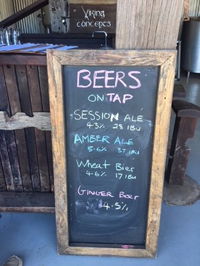 VIKING
CONCEPTS
BEERS
ON TAP
SESSION ALE
4.3% 28 IBU
AMBER ALE
5.6% 37 IBU
Wheat Bier
4.6% 17 IBU
GINGER BEER
4.5%